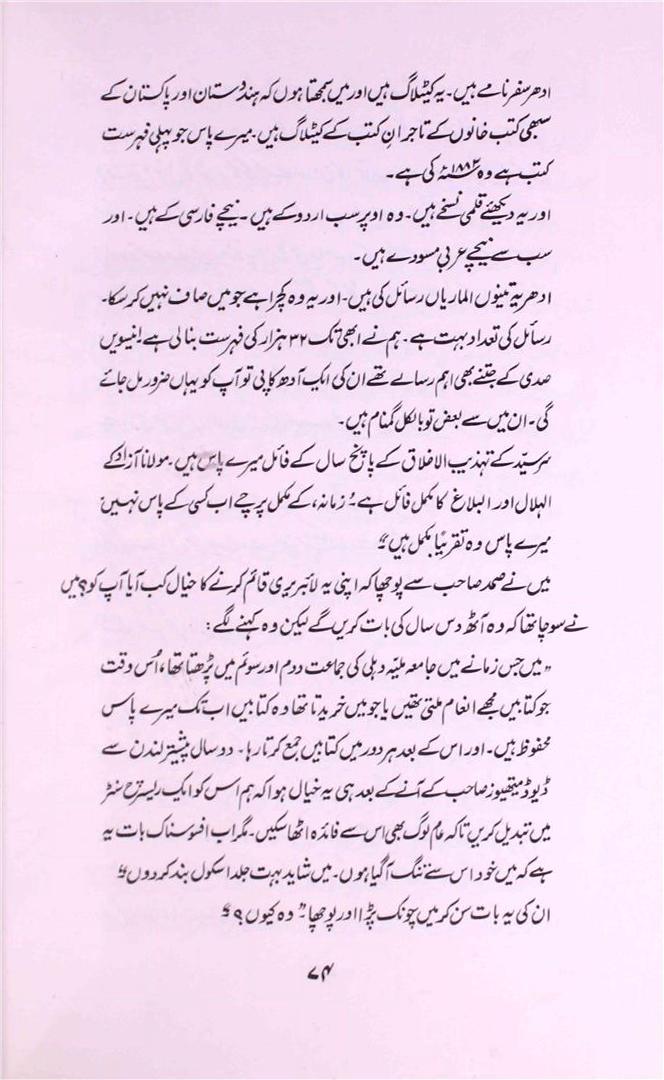 ادھر سفرنامے ہیں۔ یہ کیٹلاگ ہیں اور میں سمجھتا ہوں کہ ہندوستان اور پاکستان کے
سبھی کتب خانوں کے تاجرانِ کتب کے کیٹلاگ ہیں۔ میرے پاس جو پہلی فہرست
کتب ہے وہ ۱۸۸۲ء کی ہے۔
اور یہ دیکھئے قلمی نسخے ہیں۔ وہ اوپر سب اردو کے ہیں۔ نیچے فارسی کے ہیں۔ اور
سب سے نیچے عربی مسودے ہیں۔
ادھر یہ تینوں الماریاں رسائل کی ہیں۔ اور یہ وہ کچرا ہے جو میں صاف نہیں کر سکا۔
رسائل کی تعداد بہت ہے۔ ہم نے ابھی تک ۳۲ ہزار کی فہرست بنا لی ہے! انیسویں
صدی کے جتنے بھی اہم رسالے تھے ان کی ایک آدھ کاپی تو آپ کو یہاں ضرور مل جائے
گی۔ ان میں سے بعض تو بالکل گمنام ہیں۔
سرسیّد کے تہذیب الاخلاق کے پانچ سال کے فائل میرے پاس ہیں۔ مولانا آزاد کے
الہلال اور البلاغ کا مکمل فائل ہے۔ 'زمانہ، کے مکمل پرچے اب کسی کے پاس نہیں
میرے پاس وہ تقریباً مکمل ہیں"
میں نے صمد صاحب سے پوچھا کہ اپنی یہ لائبریری قائم کرنے کا خیال کب آیا آپ کو؟ میں
نے سوچا تھا کہ وہ آٹھ دس سال کی بات کریں گے لیکن وہ کہنے لگے :
"میں جس زمانے میں جامعہ ملیّہ دہلی کی جماعت دوم اور سوئم میں پڑھتا تھا، اُس وقت
جو کتابیں مجھے انعام ملتی تھیں یا جو میں خریدتا تھا وہ کتابیں اب تک میرے پاس
محفوظ ہیں۔ اور اس کے بعد ہر دور میں کتابیں جمع کرتا رہا۔ دو سال پیشتر لندن سے
ڈیوڈ میتھیوز صاحب کے آنے کے بعد ہی یہ خیال ہوا کہ ہم اس کو ایک ریسرچ سنٹر
میں تبدیل کریں تاکہ عام لوگ بھی اس سے فائدہ اٹھا سکیں۔ مگر اب افسوسناک بات یہ
ہے کہ میں خود اس سے تنگ آگیا ہوں۔ میں شاید بہت جلد اسکول بند کر دوں"
ان کی یہ بات سن کر میں چونک پڑا اور پوچھا۔ "وہ کیوں؟"
۷۴